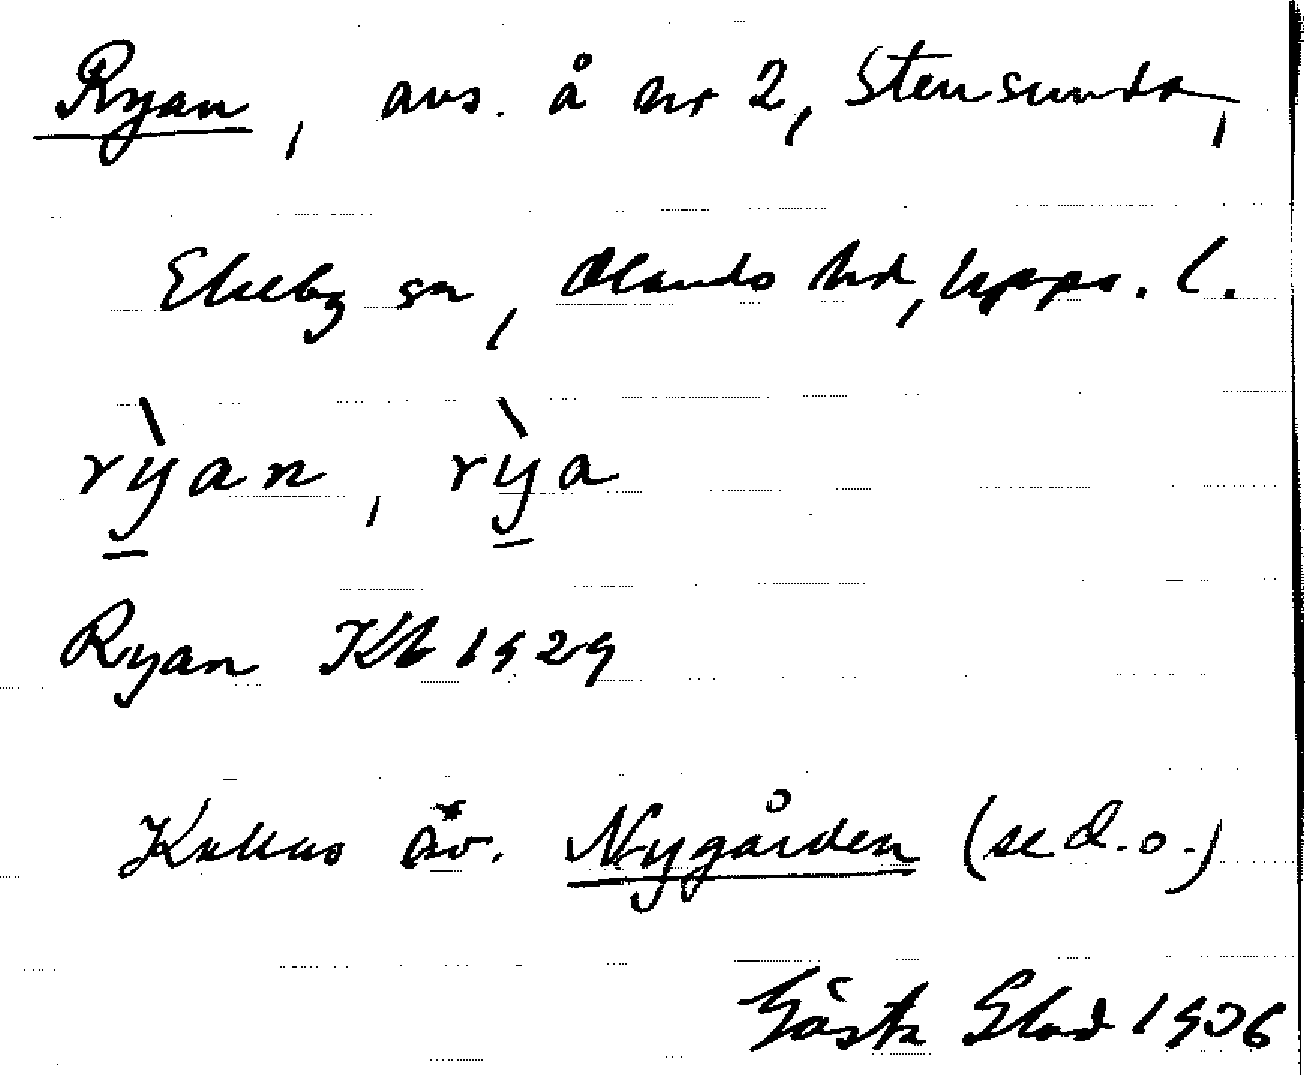 Ryan, avs. å nr 2, Stensunda,
Ekeby sn, Olands hd, Upps. l.
rỳan, rỳa
Ryan Kb 1929
Kallas äv. Nygården (se d.o.)
Gösta Glad 1936